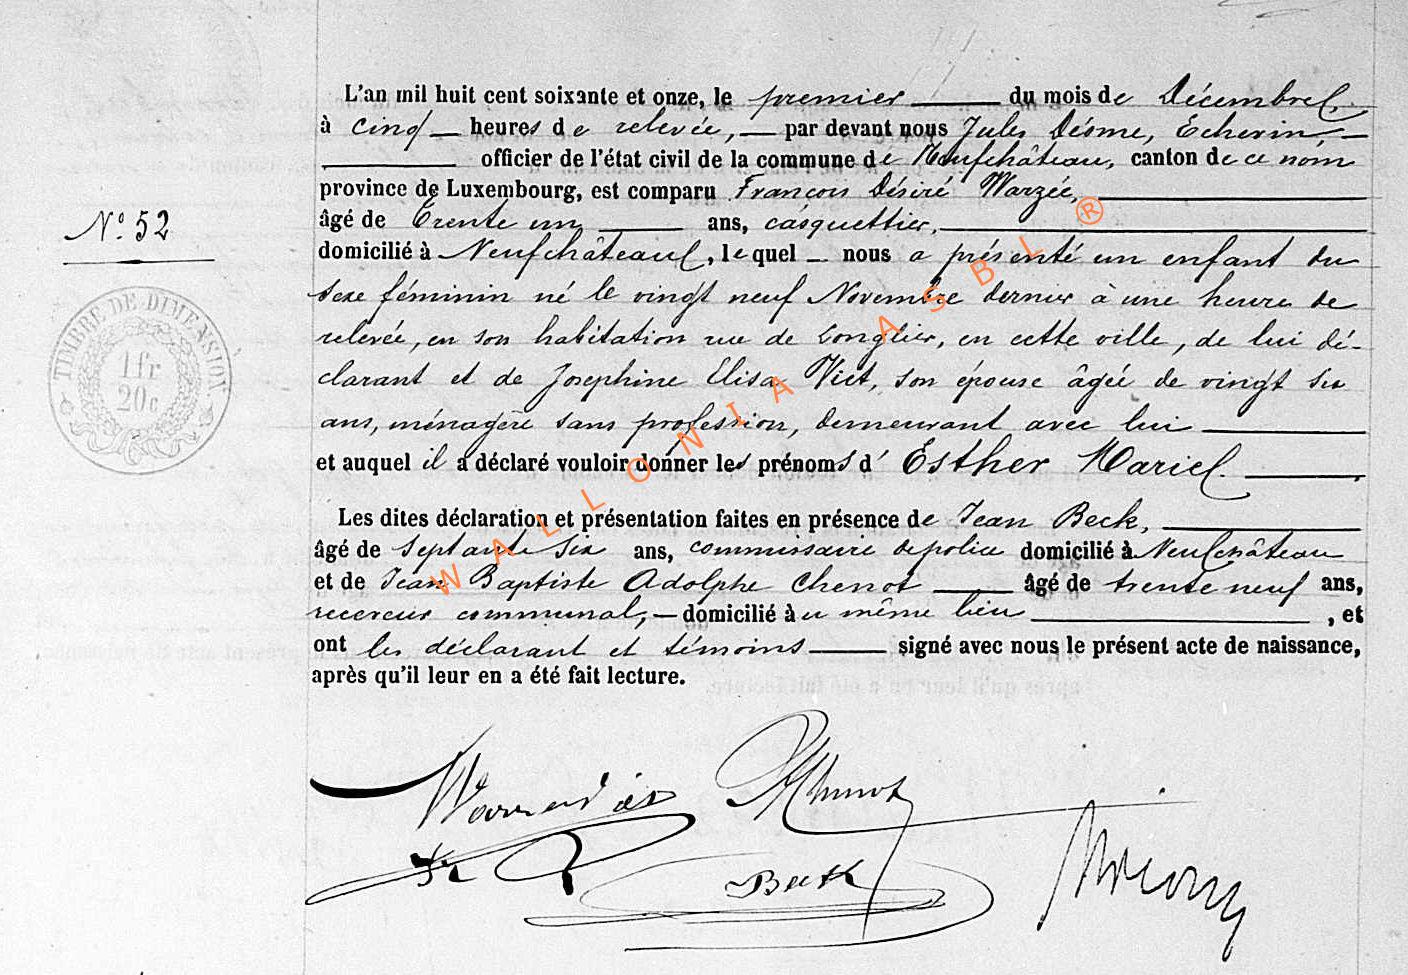 L'an mil huit cent soixante et onze, le premier du mois de Décembre
à cinq heures de relevée, par devant nous Jules Désme, Echevin
officier de l'état civil de la commune de Neufchâteau, canton de ce nom
province de Luxembourg, est comparu François Désiré Warzée,
âgé de trente un ans, casquettier,
N° 52
domicilié à Neufchâteau, lequel nous a présenté un enfant du
sexe féminin né le vingt neuf Novembre dernier à une heure de
relevée, en son habitation rue de Longlier, en cette ville, de lui dé-
TIMBRE DE DIMENSION.
1 fr
20 c
clarant et de Josephine Elisa Viet, son épouse âgée de vingt six
ans, ménagère sans profession, demeurant avec lui
et auquel il a déclaré vouloir donner les prénoms d' Esther Marie
Les dites déclaration et présentation faites en présence de Jean Beck,
âgé de septante six ans, commissaire de police domicilié à Neufchâteau
et de Jean Baptiste Adolphe Chenot âgé de trente neuf ans,
receveur communal, domicilié à u même lieu , et
ont les déclarant et témoins signé avec nous le présent acte de naissance,
après qu'il leur en a été fait lecture.
Chenot
Beck
WALLONIA ASBL ®